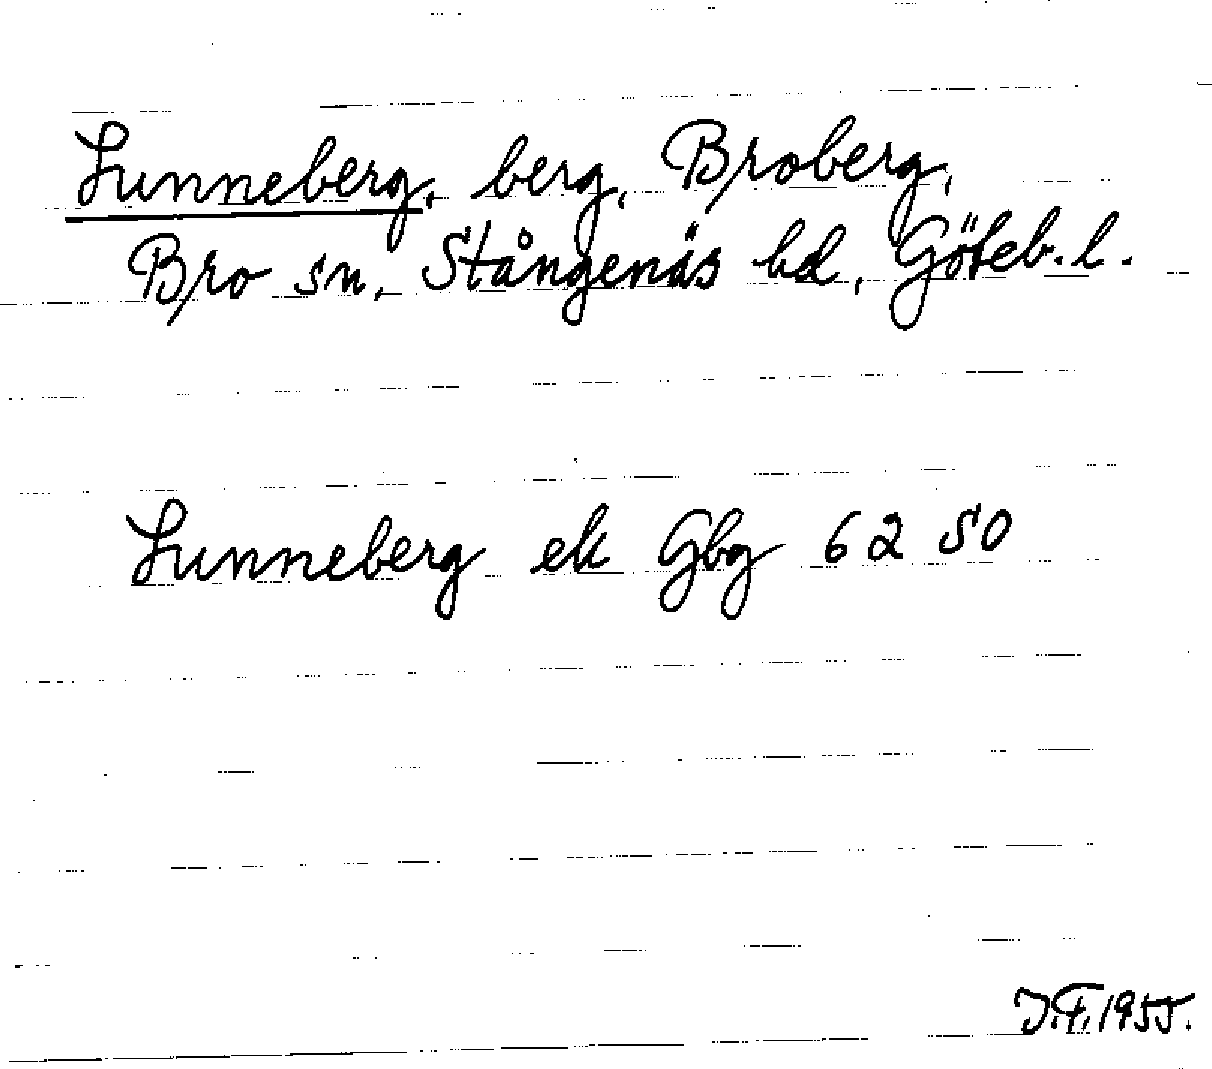 Lunneberg, berg, Broberg,
Bro sn, Stångenäs hd, Göteb. l.
Lunneberg ek Gbg 62 SO
J.F. 1955.